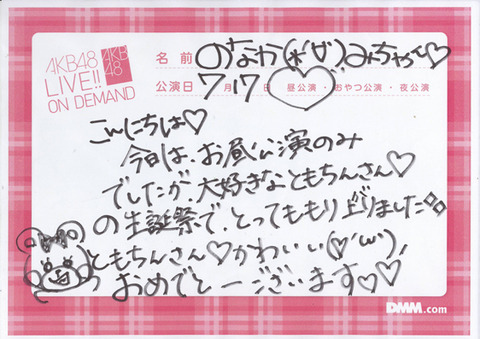 AKB48
LIVE!!
ON DEMAND
AKB
48
名前 のなか(*'∀')みちゃん♡
公演日 7月17日 昼公演・おやつ公演・夜公演
こんにちは♡
今日は、お昼公演のみ
でしたが、大好きなともちんさん♡
の生誕祭で、とってももり上りました
ともちんさん♡かわいい(♡'ω'),
おめでとーございます♡♡
DMM.com